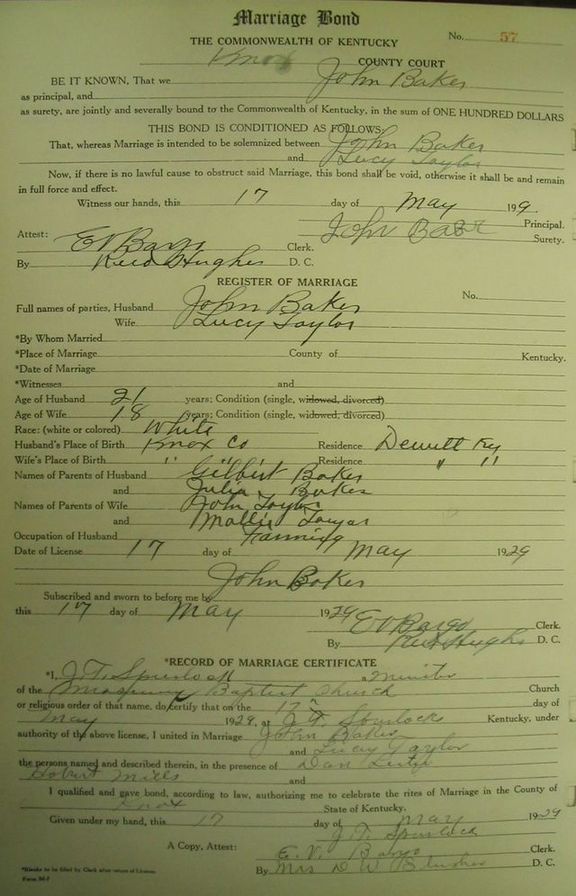 Marriage Bond
THE COMMONWEALTH OF KENTUCKY No. 57
Knox COUNTY COURT
BE IT KNOWN, That we John Baker
as principal, and
as surety, are jointly and severally bound to the Commonwealth of Kentucky, in the sum of ONE HUNDRED DOLLARS
THIS BOND IS CONDITIONED AS FOLLOWS:
That, whereas Marriage is intended to be solemnized between John Baker
and Lucy Taylor
Now, if there is no lawful cause to obstruct said Marriage, this bond shall be void, otherwise it shall be and remain
in full force and effect.
Witness our hands, this 17 day of May 19
John Principal.
Attest: Surety.
E V Bargo Clerk.
By Reed Hughes D. C.
REGISTER OF MARRIAGE
Full names of parties, Husband John Baker No.
Wife Lucy Taylor
*By Whom Married
*Place of Marriage County of Kentucky.
*Date of Marriage
*Witnesses and
Age of Husband 21 years; Condition (single, widowed, divorced)
Age of Wife 18 years; Condition (single, widowed, divorced)
Race: (white or colored) White
Husband's Place of Birth Knox Co Residence Dewitt Ky
Wife's Place of Birth " " Residence " "
Names of Parents of Husband Gilbert Baker
and Julia Baker
Names of Parents of Wife John Taylor
and Mollie
Occupation of Husband Farming
Date of License 17 day of May 1929
John Baker
Subscribed and sworn to before me by
this 17 day of May 1929 E V Bargo Clerk.
By Reed Hughes D. C.
*RECORD OF MARRIAGE CERTIFICATE
*I, J. T. Spurlock a
of the Missionary Baptist Church Church
or religious order of that name, do certify that on the 17 day of
May 1929, at J. T. Spurlocks Kentucky, under
authority of the above license, I united in Marriage John Baker
and Lucy Taylor
the persons named and described therein, in the presence of Dan
Hobert Mills and
I qualified and gave bond, according to law, authorizing me to celebrate the rites of Marriage in the County of
Knox State of Kentucky.
Given under my hand, this 17 day of May 1929
J. T. Spurlock
A Copy, Attest: E. V. Bargo Clerk.
By Mrs D. W. D. C.
*Blanks to be filled by Clerk after return of License.